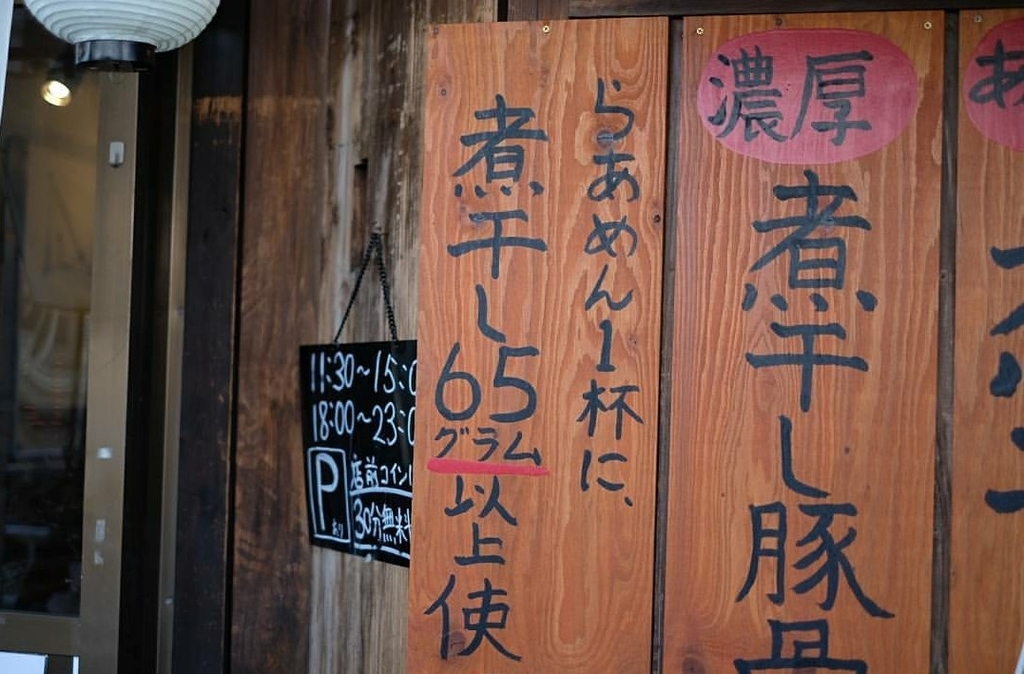 濃厚
煮干し豚骨
らあめん1杯に、
煮干し65
グラム
以上使
11:30~15:0
18:00~23:0
P
あり
店前コイン
30分無料